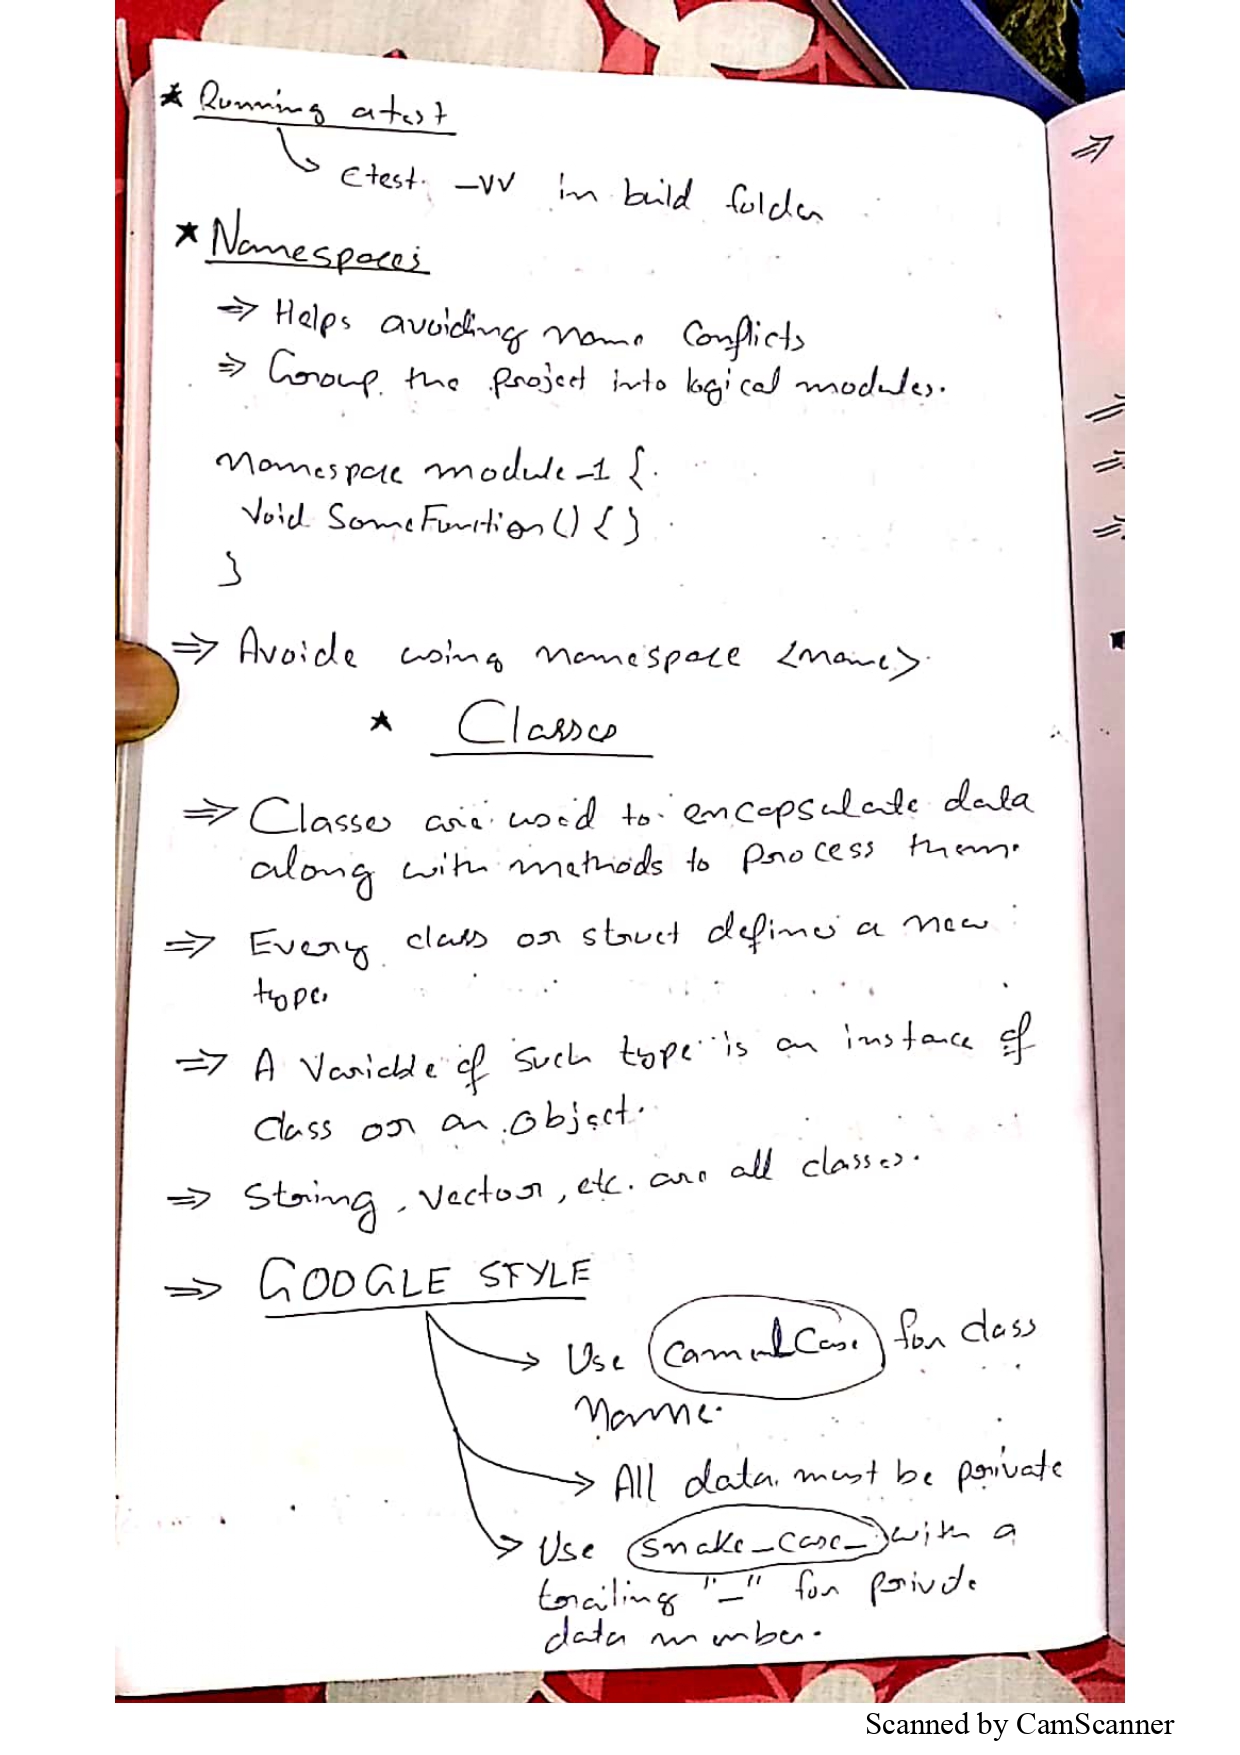 ★ Running a test
ctest -VV in build folder
★ Namespaces
⇒ Helps avoiding name conflicts
⇒ Group the project into logical modules.
namespace module_1 {
Void SomeFunction() { }
}
⇒ Avoide using namespace <name>.
★ Classes
⇒ Classes are used to encapsulate data
along with methods to process them.
⇒ Every class or struct defines a new
type.
⇒ A Variable of such type is an instance of
class or an object.
⇒ String, Vector, etc. are all classes.
⇒ GOOGLE STYLE
→ Use CamelCase for class
Name.
→ All data must be private
→ Use snake_case_ with a
trailing "_" for private
data member.
Scanned by CamScanner